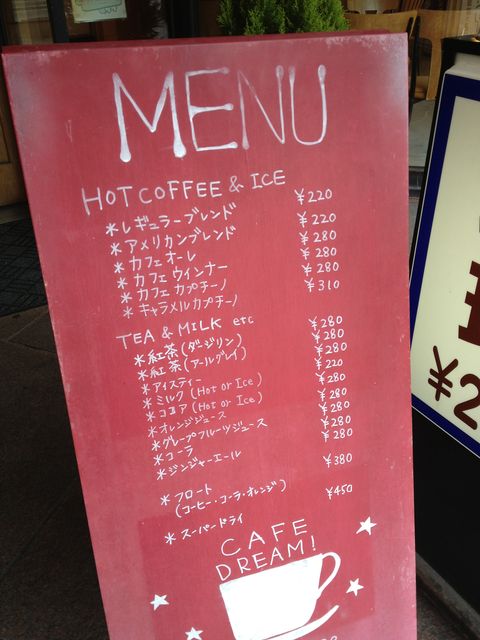 MENU
HOT COFFEE & ICE
*レギュラーブレンド ¥220
*アメリカンブレンド ¥220
*カフェオーレ ¥280
*カフェウインナー ¥280
*カフェカプチーノ ¥280
*キャラメルカプチーノ ¥310
TEA & MILK etc
*紅茶(ダージリン) ¥280
*紅茶(アールグレイ) ¥280
*アイスティー ¥280
*ミルク(Hot or Ice) ¥220
*ココア(Hot or Ice) ¥280
*オレンジジュース ¥280
*グレープフルーツジュース ¥280
*コーラ ¥280
*ジンジャーエール ¥280
*フロート ¥380
(コーヒー・コーラ・オレンジ)
*スーパードライ ¥450
CAFE
DREAM!
¥2